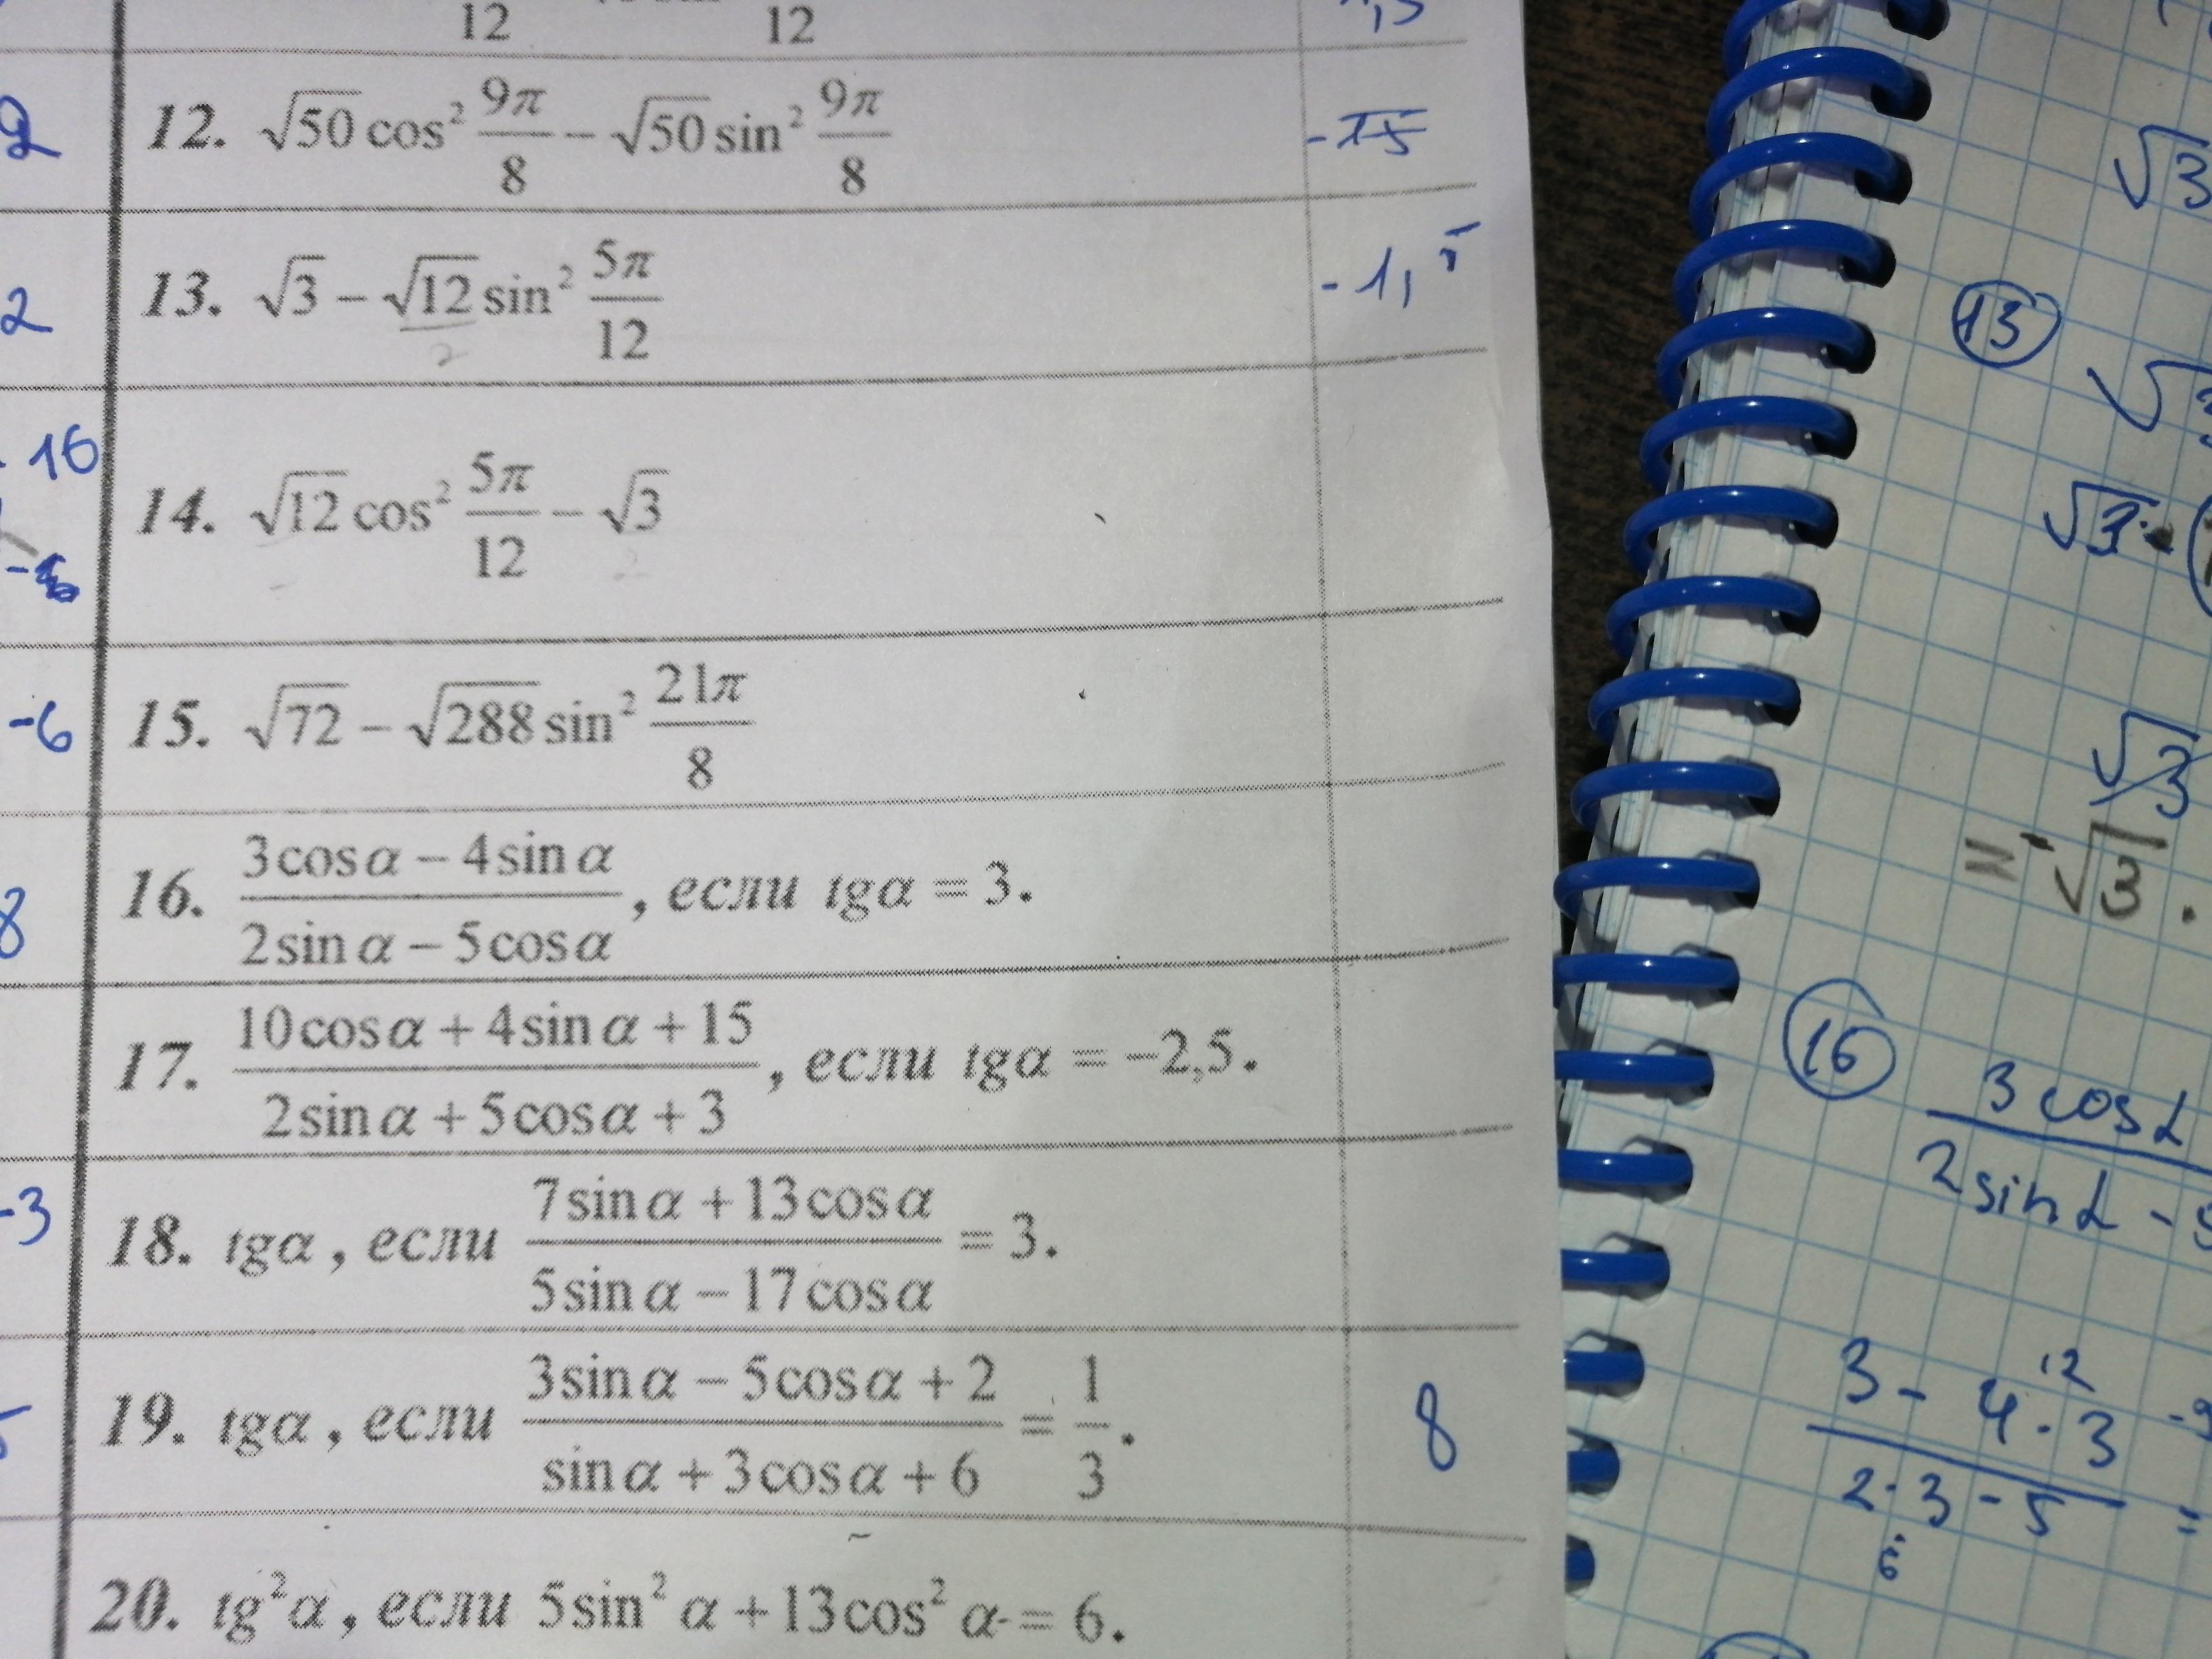 12 12
12. √50 cos² 9π/8 − √50 sin² 9π/8
13. √3 − √12 sin² 5π/12 -1,5
2
14. √12 cos² 5π/12 − √3
15. √72 − √288 sin² 21π/8
16. (3cosα − 4sinα)/(2sinα − 5cosα), если tgα = 3.
17. (10cosα + 4sinα + 15)/(2sinα + 5cosα + 3), если tgα = −2,5.
18. tgα, если (7sinα + 13cosα)/(5sinα − 17cosα) = 3.
19. tgα, если (3sinα − 5cosα + 2)/(sinα + 3cosα + 6) = 1/3. 8
20. tg²α, если 5sin²α + 13cos²α = 6.
2
2
16
-6
8
-3
√3
13
√3
√3
= -√3.
16
3cosα
2sinα -
12
3 - 4·3
2·3 - 5 =
6